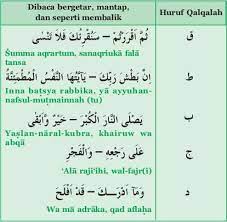 Dibaca bergetar, mantap,
dan seperti membalik
Huruf Qalqalah
ثُمَّ اَقْرَرْتُمْ – سَنُقْرِئُكَ فَلَا تَنْسٰى
ق
Šumma aqrartum, sanaqriukā falā
tansā
اِنَّ بَطْشَ رَبِّكَ – يٰٓاَيَّتُهَا النَّفْسُ الْمُطْمَئِنَّةُ
ط
Inna baṭsya rabbika, yā ayyuhan-
nafsul-muṭmainnah (tu)
يَصْلَى النَّارَ الْكُبْرٰى – خَيْرٌ وَّاَبْقٰى
ب
Yaṣlan-nāral-kubra, khairuw wa
abqā
عَلٰى رَجْعِهٖ – وَالْفَجْرِ
ج
'Alā raji'ihi, wal-fajr(i)
وَمَآ اَدْرٰىكَ – قَدْ اَفْلَحَ
د
Wa mā adrāka, qad aflaḥa